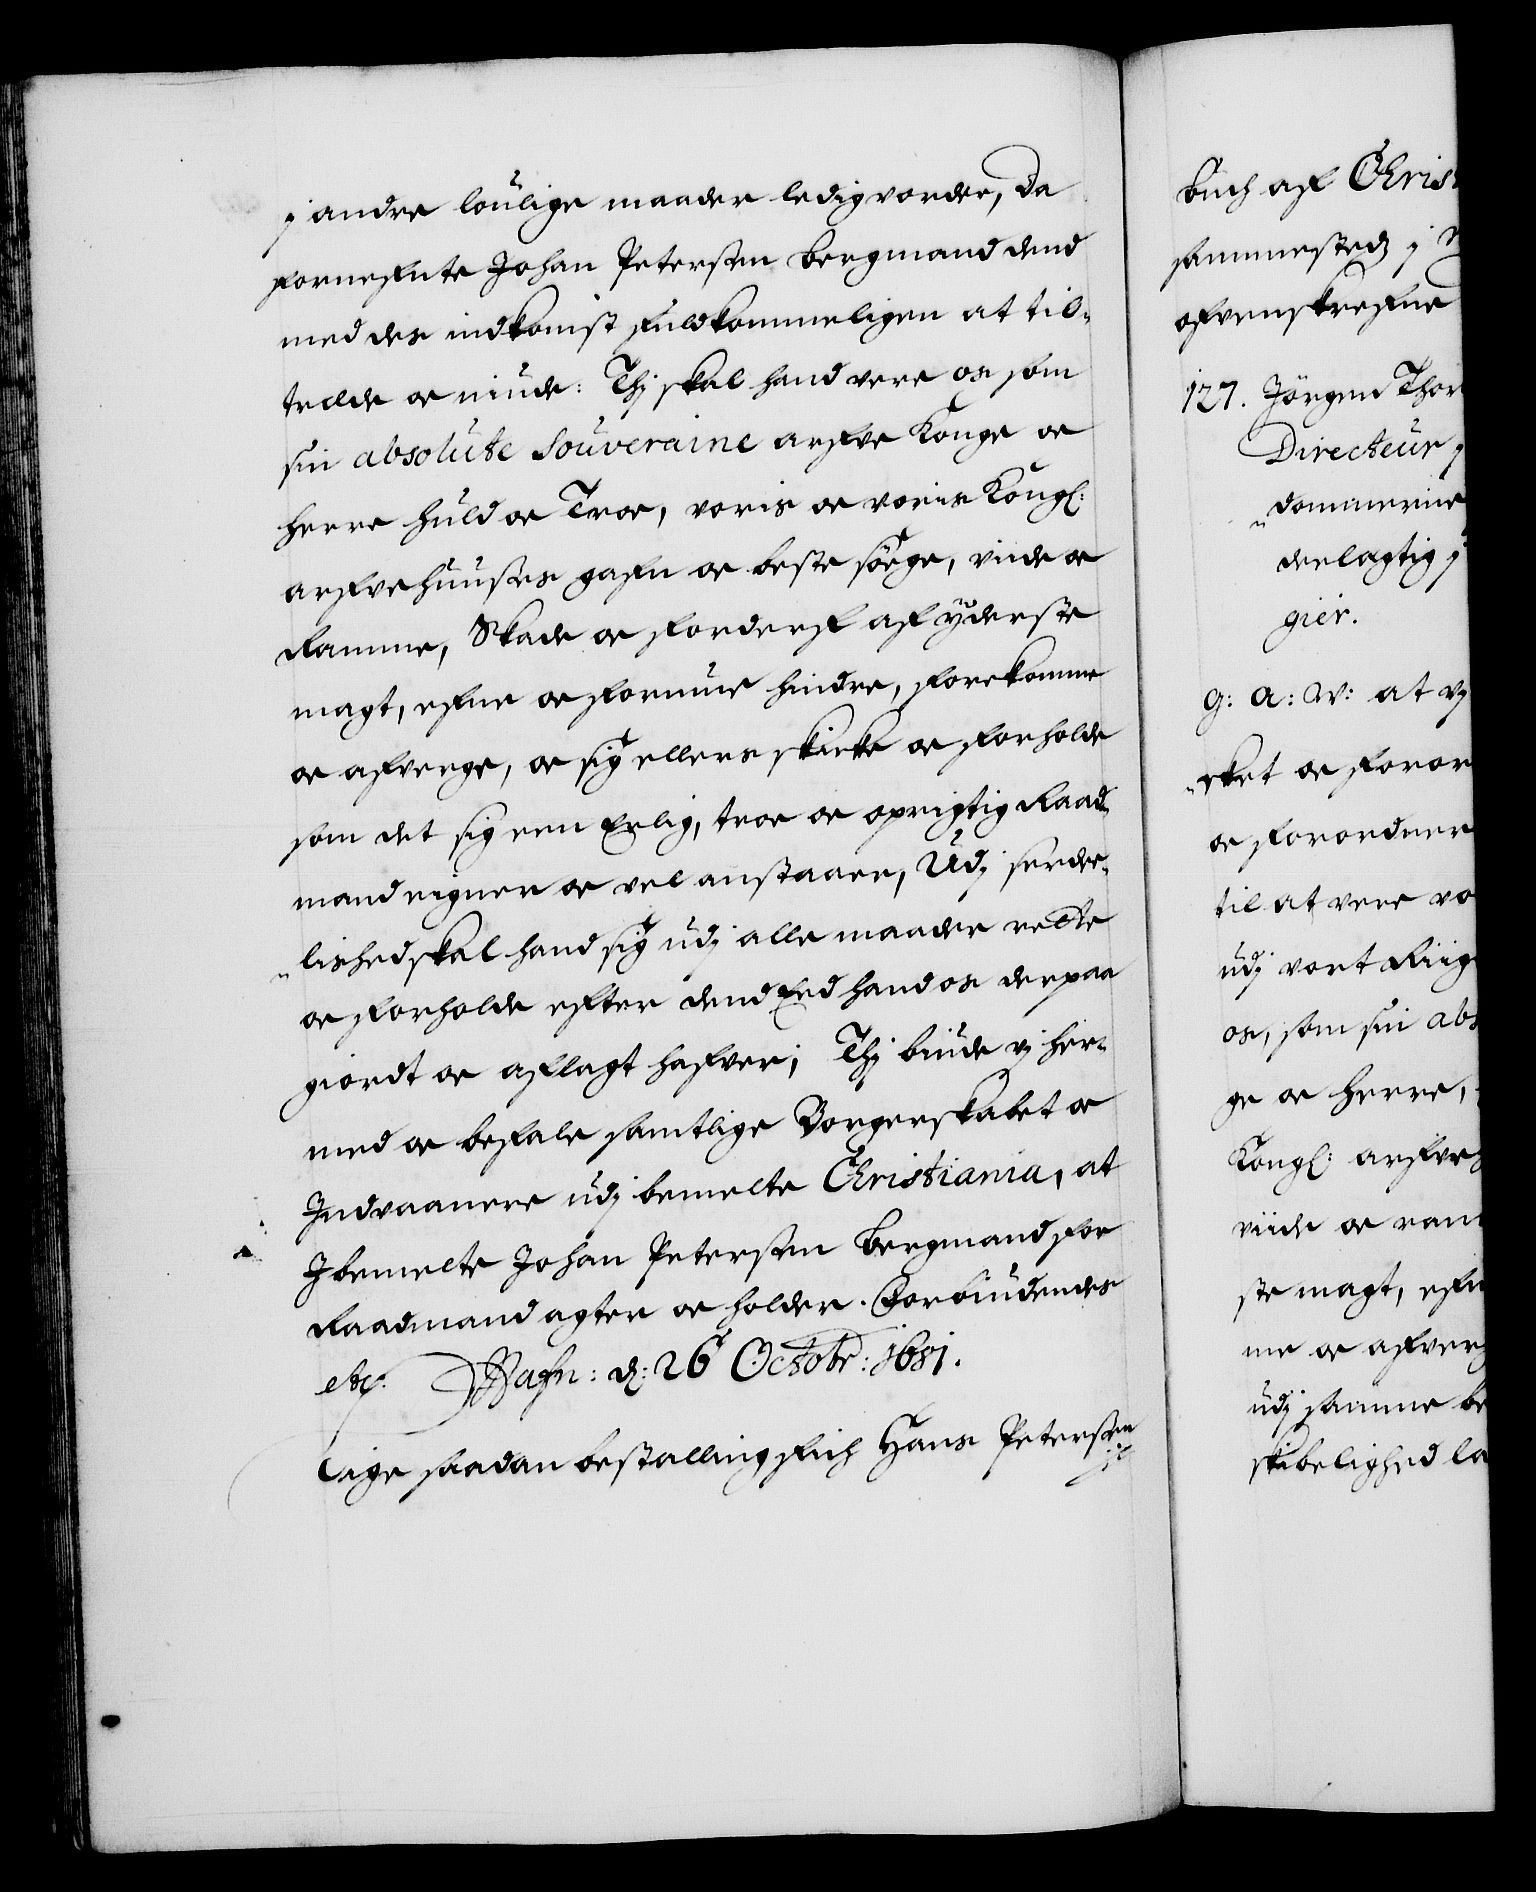 j andre loulige maader ledig vorder, Da
fornefnte Johan Petersen Bergmand dend
med des indkomst fuldkommeligen at til-
træde oc niude: Thj skal hand vere os som
sin absolute Souveraine arfve Konge oc
Herre huld oc Troe, voris oc voris Kongl:
arfvehuuses gafn oc beste söge, viide oc
Ramme, Skade oc forderf af yderste
magt, efne oc formue hindre, forekomme
oc afverge, oc sig ellers skicke oc forholde
som det sig een Erlig, troe oc oprigtig Raad-
mand eigner oc vel anstaaer, Udj serde-
lished skal hand sig udj alle maader rette
oc forholde efter dend Eed hand os derpaa
giordt oc aflagt hafver; Thj biude vj her-
med oc befale samtlige Borgerskabet oc
Indvaanere udj bemelte Christiania, at
I bemelte Johan Petersen Bergmand for
Raadmand agter oc holder. Forbiudendes
etc. Hafn: d: 26 Octobr: 1681.
Lige saadan bestalling fich Hans Petersen
Buch af Chris
sammesteds j
ofvenskrefne
127. Jörgen Thor
Directeur j
dommerne
deelagtig j
gier.
G: A: W: at vj
sket oc foror
oc forordner
til at vere vo
udj vort Riig
os, som sin abs
ge oc Herre,
Kongl: arfve
viide oc ram
ste magt, efn
me oc afver
udj samme be
skibelighed la